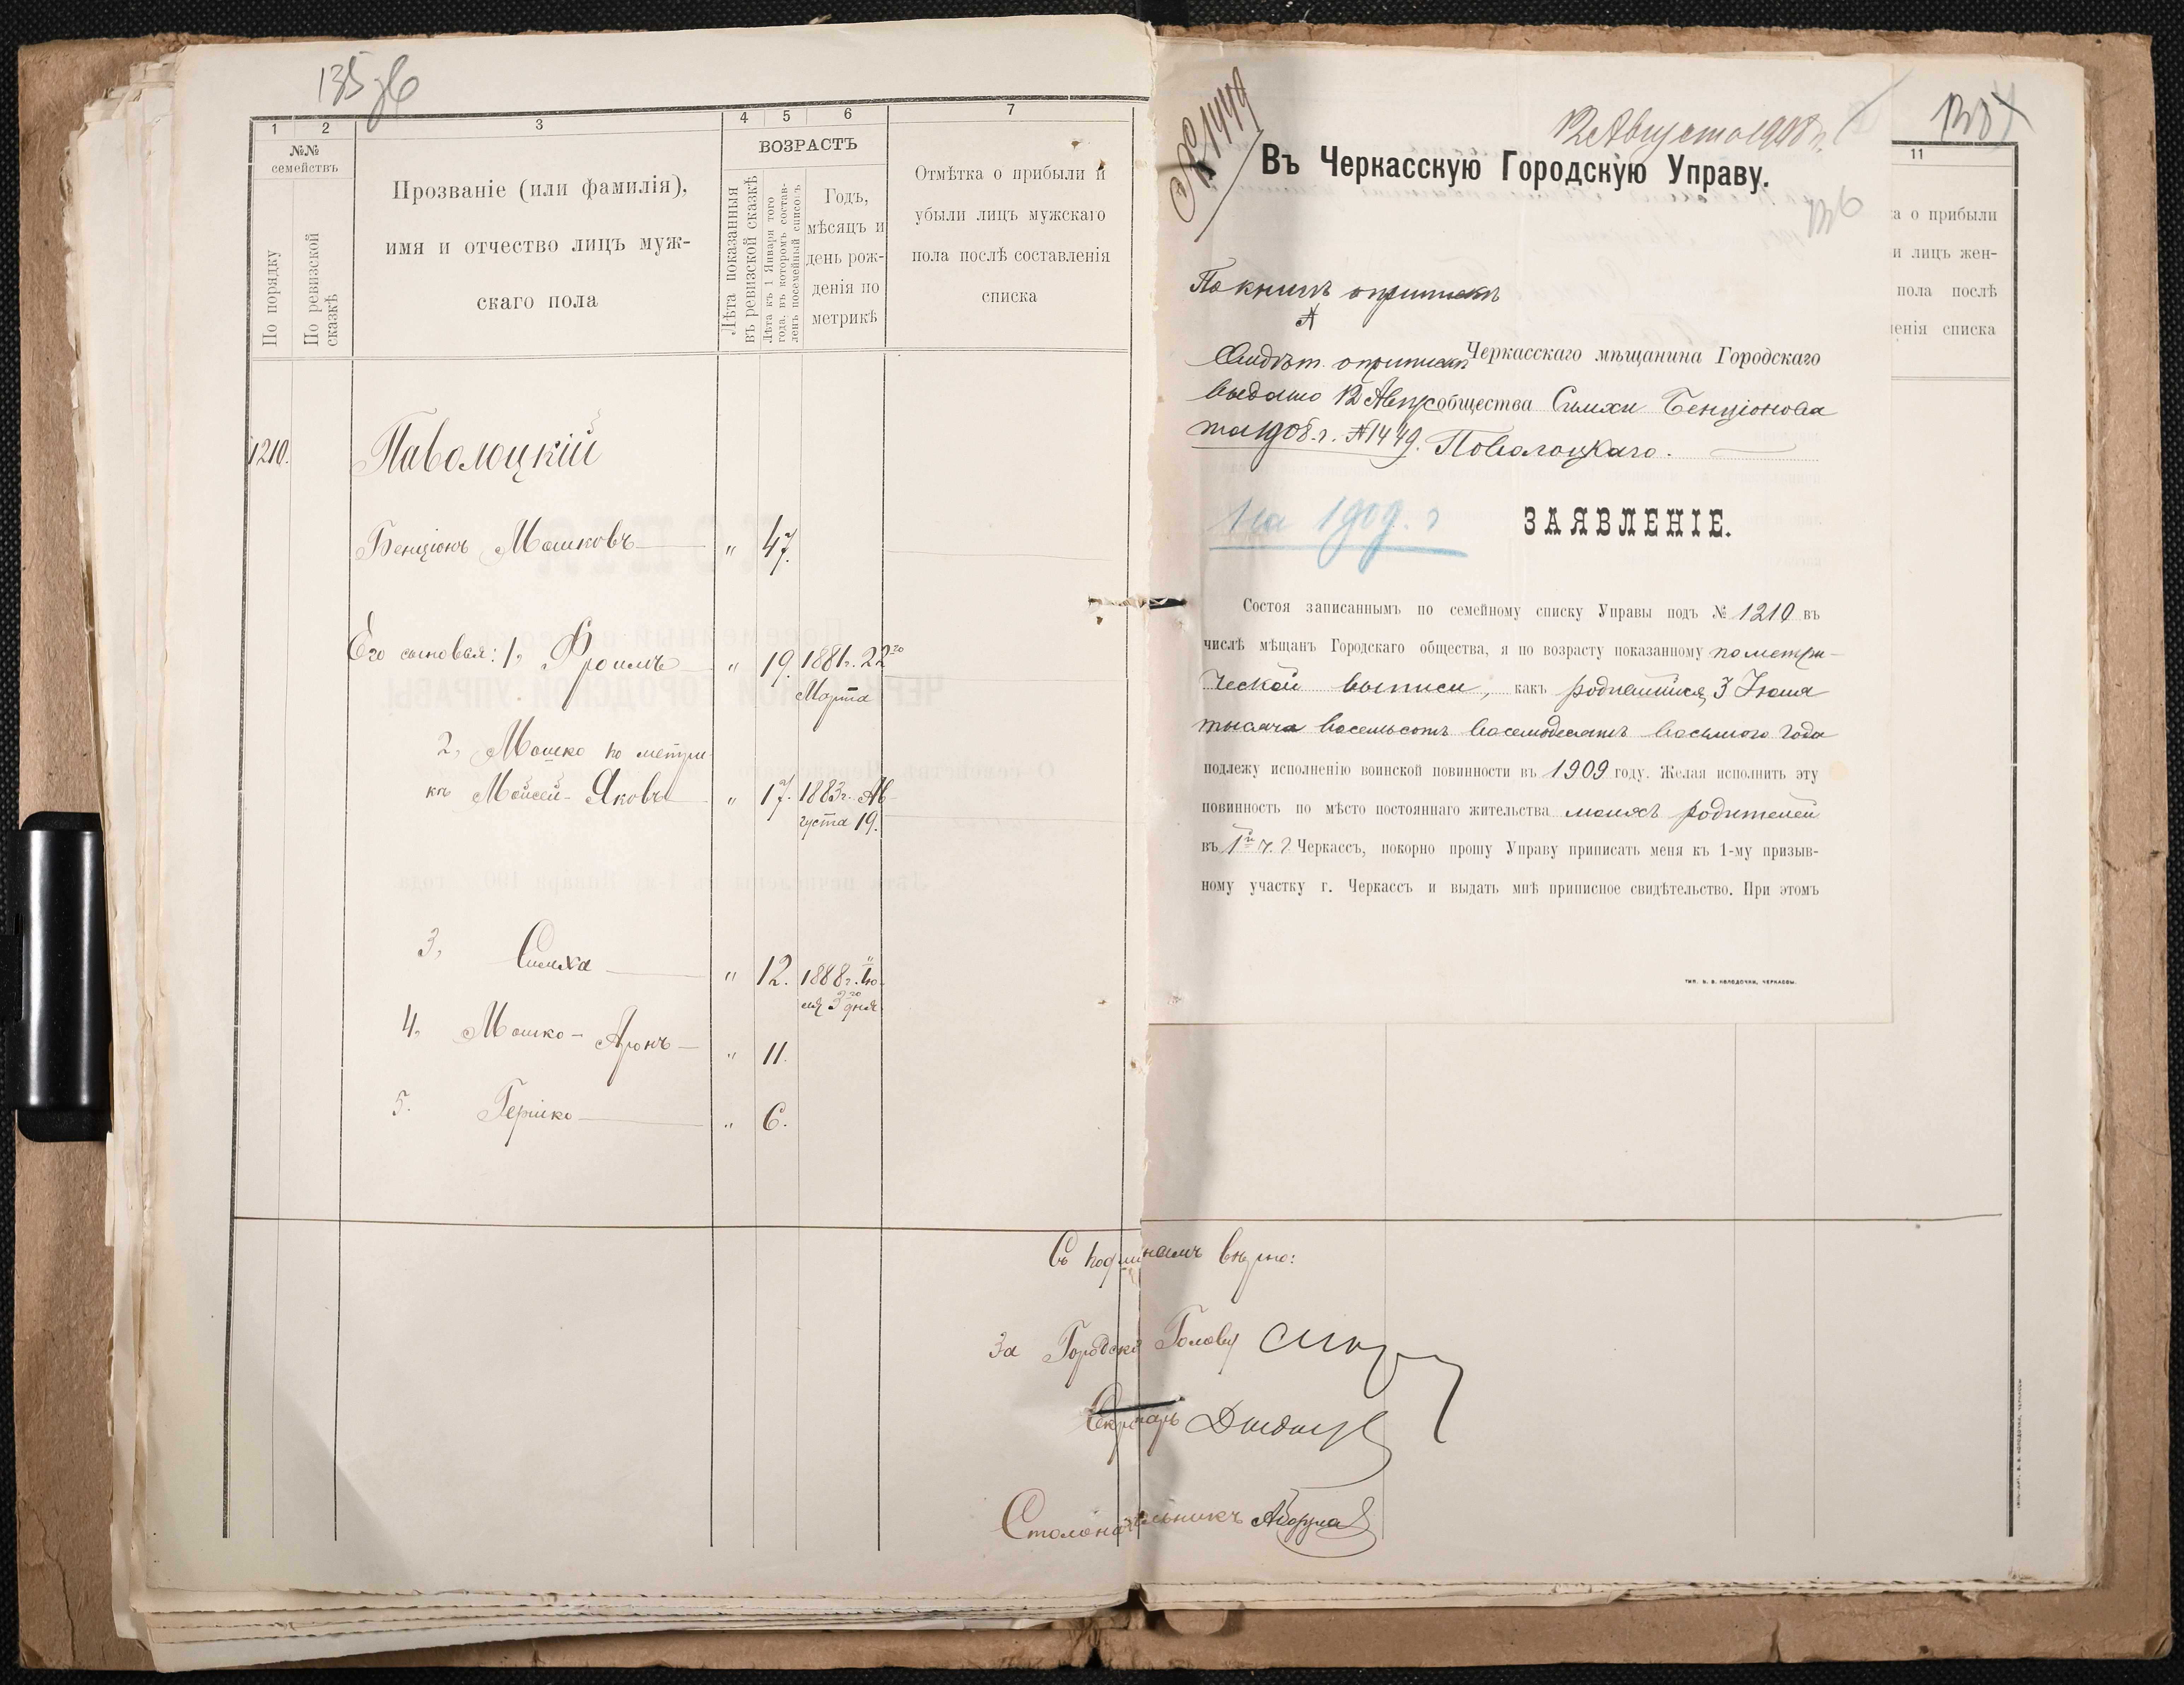 135 об
1 2 3 4 5 6 7
№№ семействъ
По порядку
По ревизской сказкѣ
Прозваніе (или фамилія),
имя и отчество лицъ муж-
скаго пола
ВОЗРАСТЪ
Лѣта показанныя въ ревизской сказкѣ
Лѣта къ 1 Января того года, въ которомъ состав-ленъ посемейный списокъ
Годъ,
мѣсяцъ и
день рож-
денія по
метрикѣ
Отмѣтка о прибыли и
убыли лицъ мужскаго
пола послѣ составленія
списка
1210. Паволоцкій
Бенціонъ Мошковъ " 47.
Его сыновья: 1, Фроимъ " 19. 1881г. 22го
Марта
2, Мошко по метри-
кѣ Мойсей-Яковъ " 17. 1883г. Ав-
густа 19.
3, Симха " 12. 1888г. Ію-
ля 3го дня.
4, Мошко-Аронъ " 11.
5. Гершко " 6.
Съ подлиннымъ вѣрно:
За Городского Голову
Секретарь
Столоначальникъ
№ 1449
12 Августа 1908 г.
136
Въ Черкасскую Городскую Управу.
По книгѣ о припискѣ
А
Свидѣт. о припискѣ
выдано 12 Авгус-
та 1908 г. № 1449.
Черкасскаго мѣщанина Городскаго
общества Симхи Бенціонова
Поволоцкаго.
На 1909. г
ЗАЯВЛЕНІЕ.
Состоя записаннымъ по семейному списку Управы подъ № 1210 въ
числѣ мѣщанъ Городскаго общества, я по возрасту показанному по метри-
ческой выписи, какъ родившійся 3 Іюля
тысяча восемьсотъ восемьдесятъ восьмого года
подлежу исполненію воинской повинности въ 1909 году. Желая исполнить эту
повинность по мѣсто постояннаго жительства моихъ родителей
въ 1й ч. г. Черкассъ, покорно прошу Управу приписать меня къ 1-му призыв-
ному участку г. Черкассъ и выдать мнѣ приписное свидѣтельство. При этомъ
ТИП. В. В. КОЛОДОЧКИ, ЧЕРКАССЫ.
11
а о прибыли
и лицъ жен-
пола послѣ
ленія списка